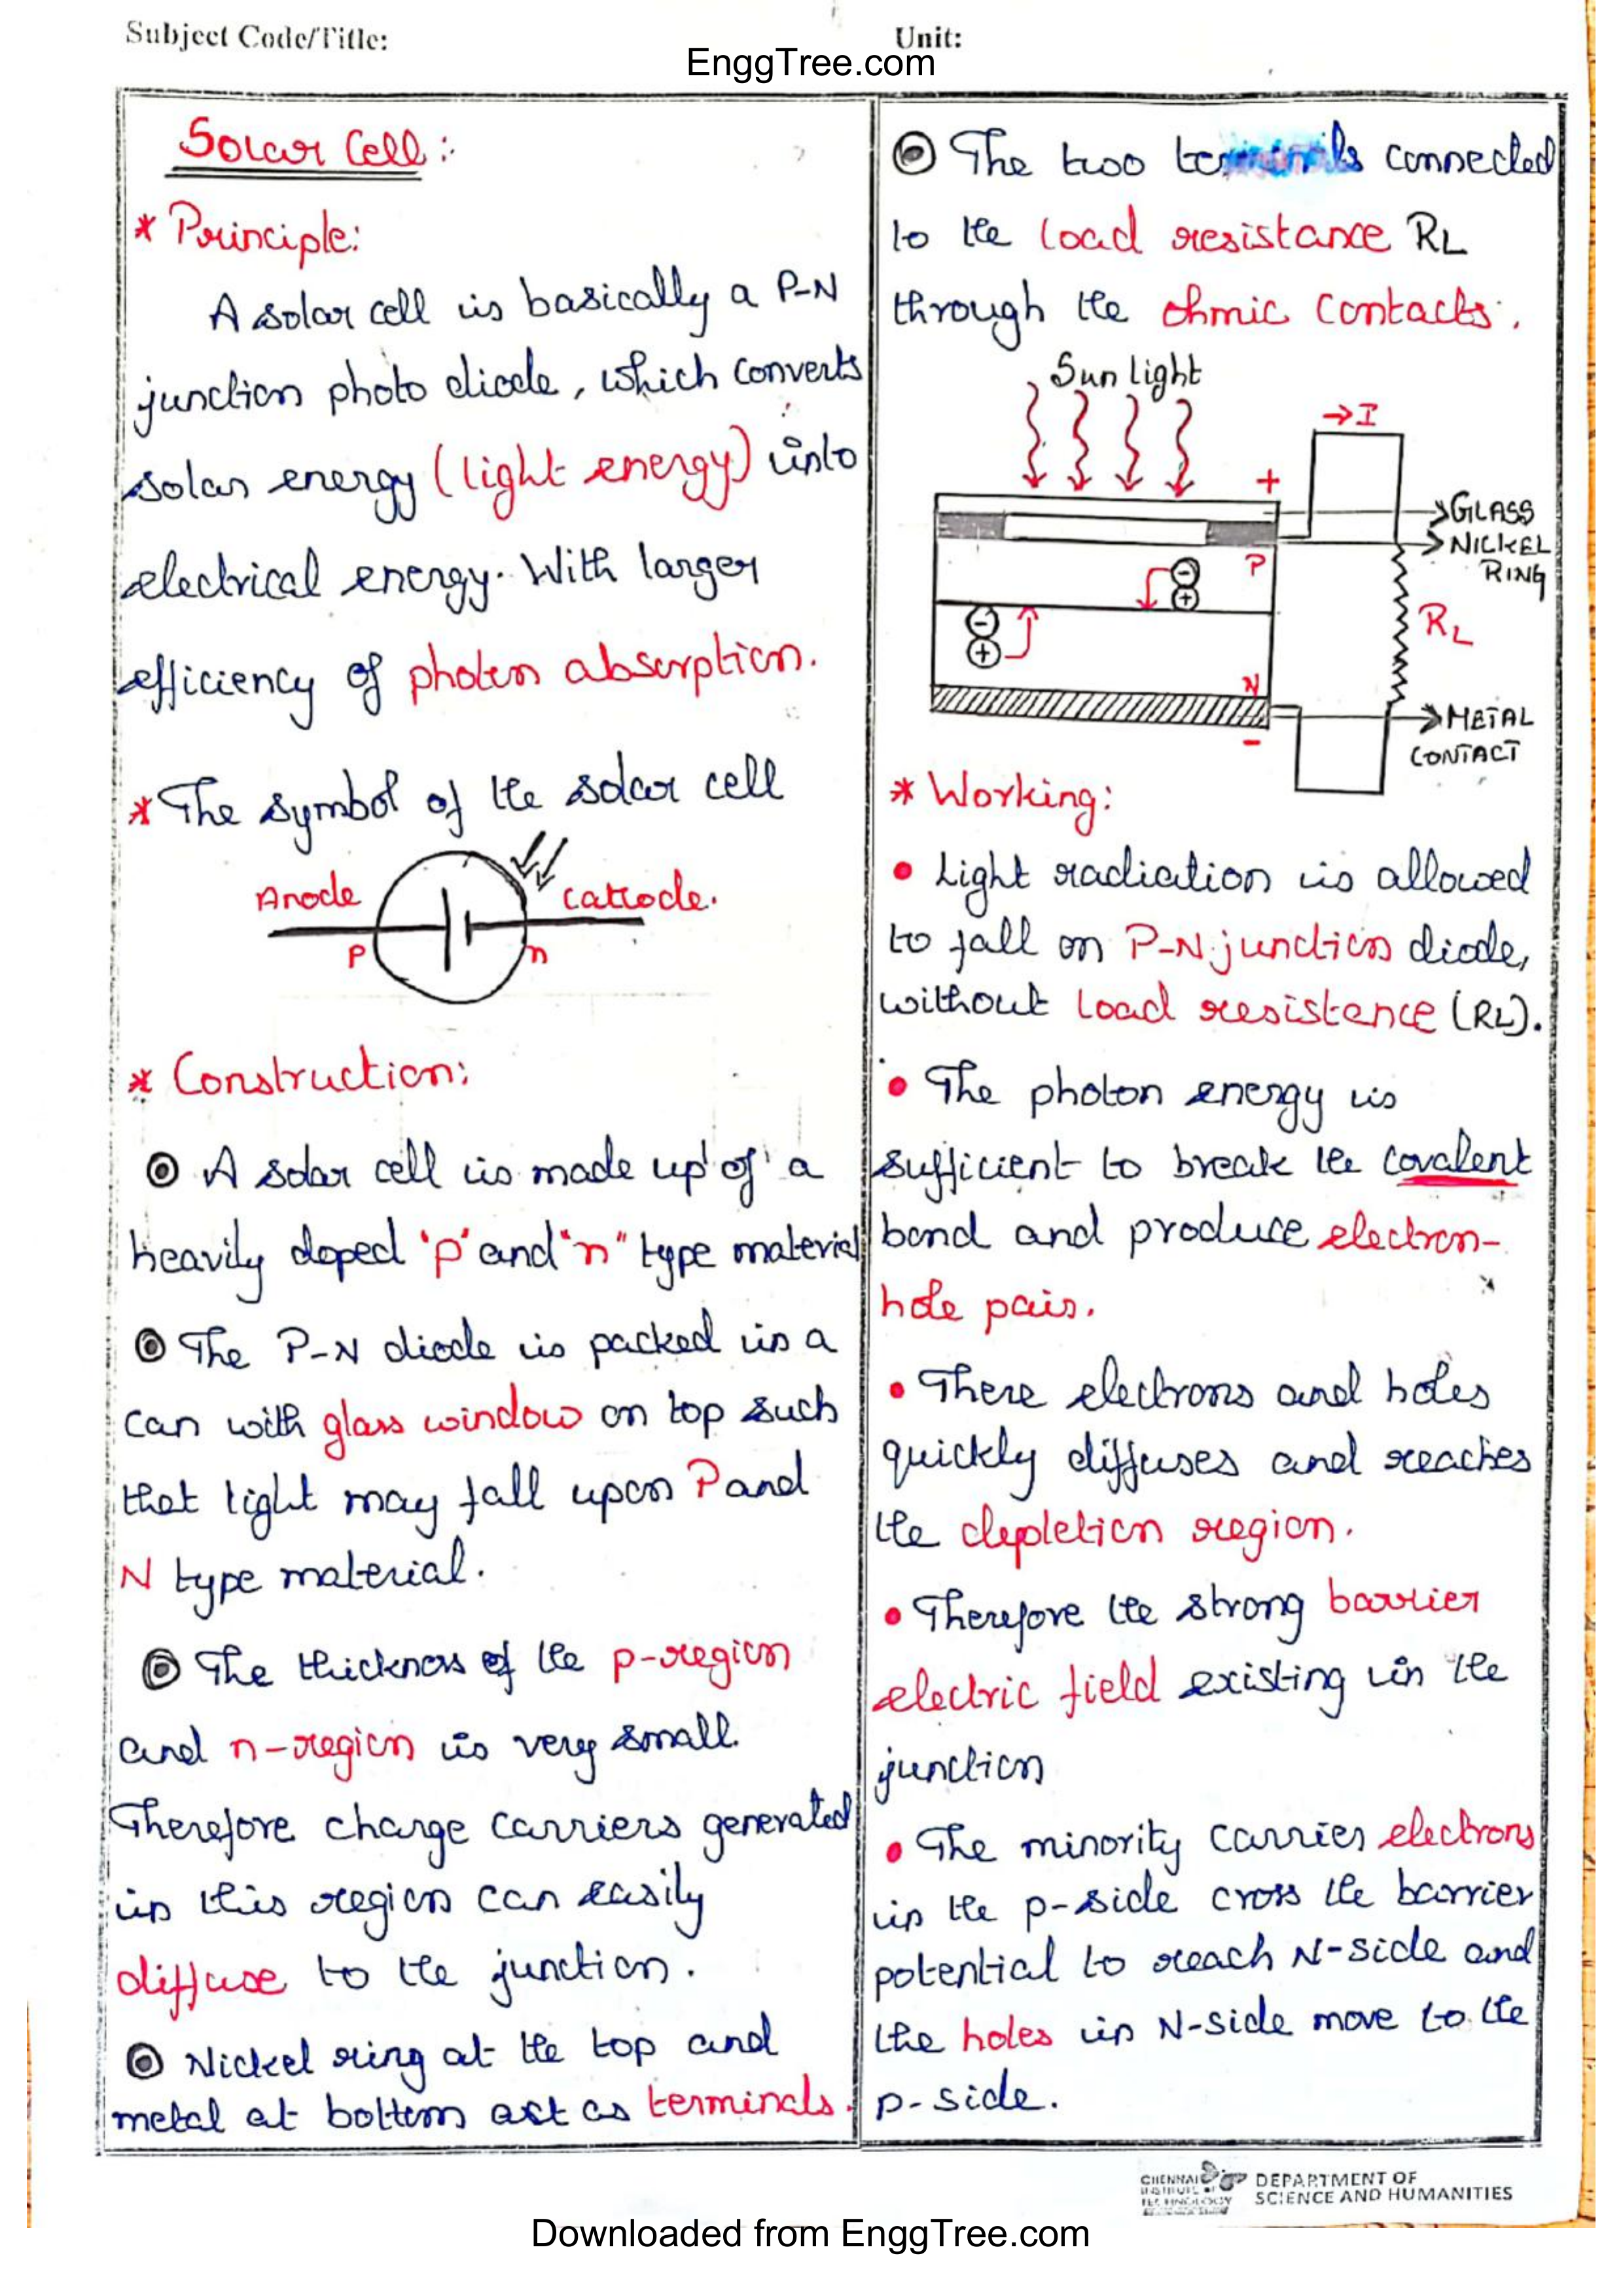 Subject Code/Title:
Unit:
EnggTree.com
Solar Cell:
* Principle:
A solar cell is basically a P-N
junction photo diode, which converts
solar energy (light energy) into
electrical energy. With larger
efficiency of photon absorption.
* The symbol of the solar cell
Anode
Cathode.
P
n
* Construction:
A solar cell is made up of a
heavily doped 'p' and "n" type material
The P-N diode is packed in a
can with glass window on top such
that light may fall upon P and
N type material.
The thickness of the p-region
and n-region is very small.
Therefore charge carriers generated
in this region can easily
diffuse to the junction.
Nickel ring at the top and
metal at bottom act as terminals.
The two terminals connected
to the load resistance RL
through the ohmic contacts.
Sun light
→I
+
GLASS
NICKEL
RING
P
-
+
-
+
RL
N
METAL
CONTACT
-
* Working:
• Light radiation is allowed
to fall on P-N junction diode,
without load resistance (RL).
• The photon energy is
sufficient to break the covalent
bond and produce electron-
hole pair.
• There electrons and holes
quickly diffuses and reaches
the depletion region.
• Therefore the strong barrier
electric field existing in the
junction
• The minority carrier electrons
in the p-side cross the barrier
potential to reach N-side and
the holes in N-side move to the
p-side.
CHENNAI
INSTITUTE OF
TECHNOLOGY
DEPARTMENT OF
SCIENCE AND HUMANITIES
Downloaded from EnggTree.com